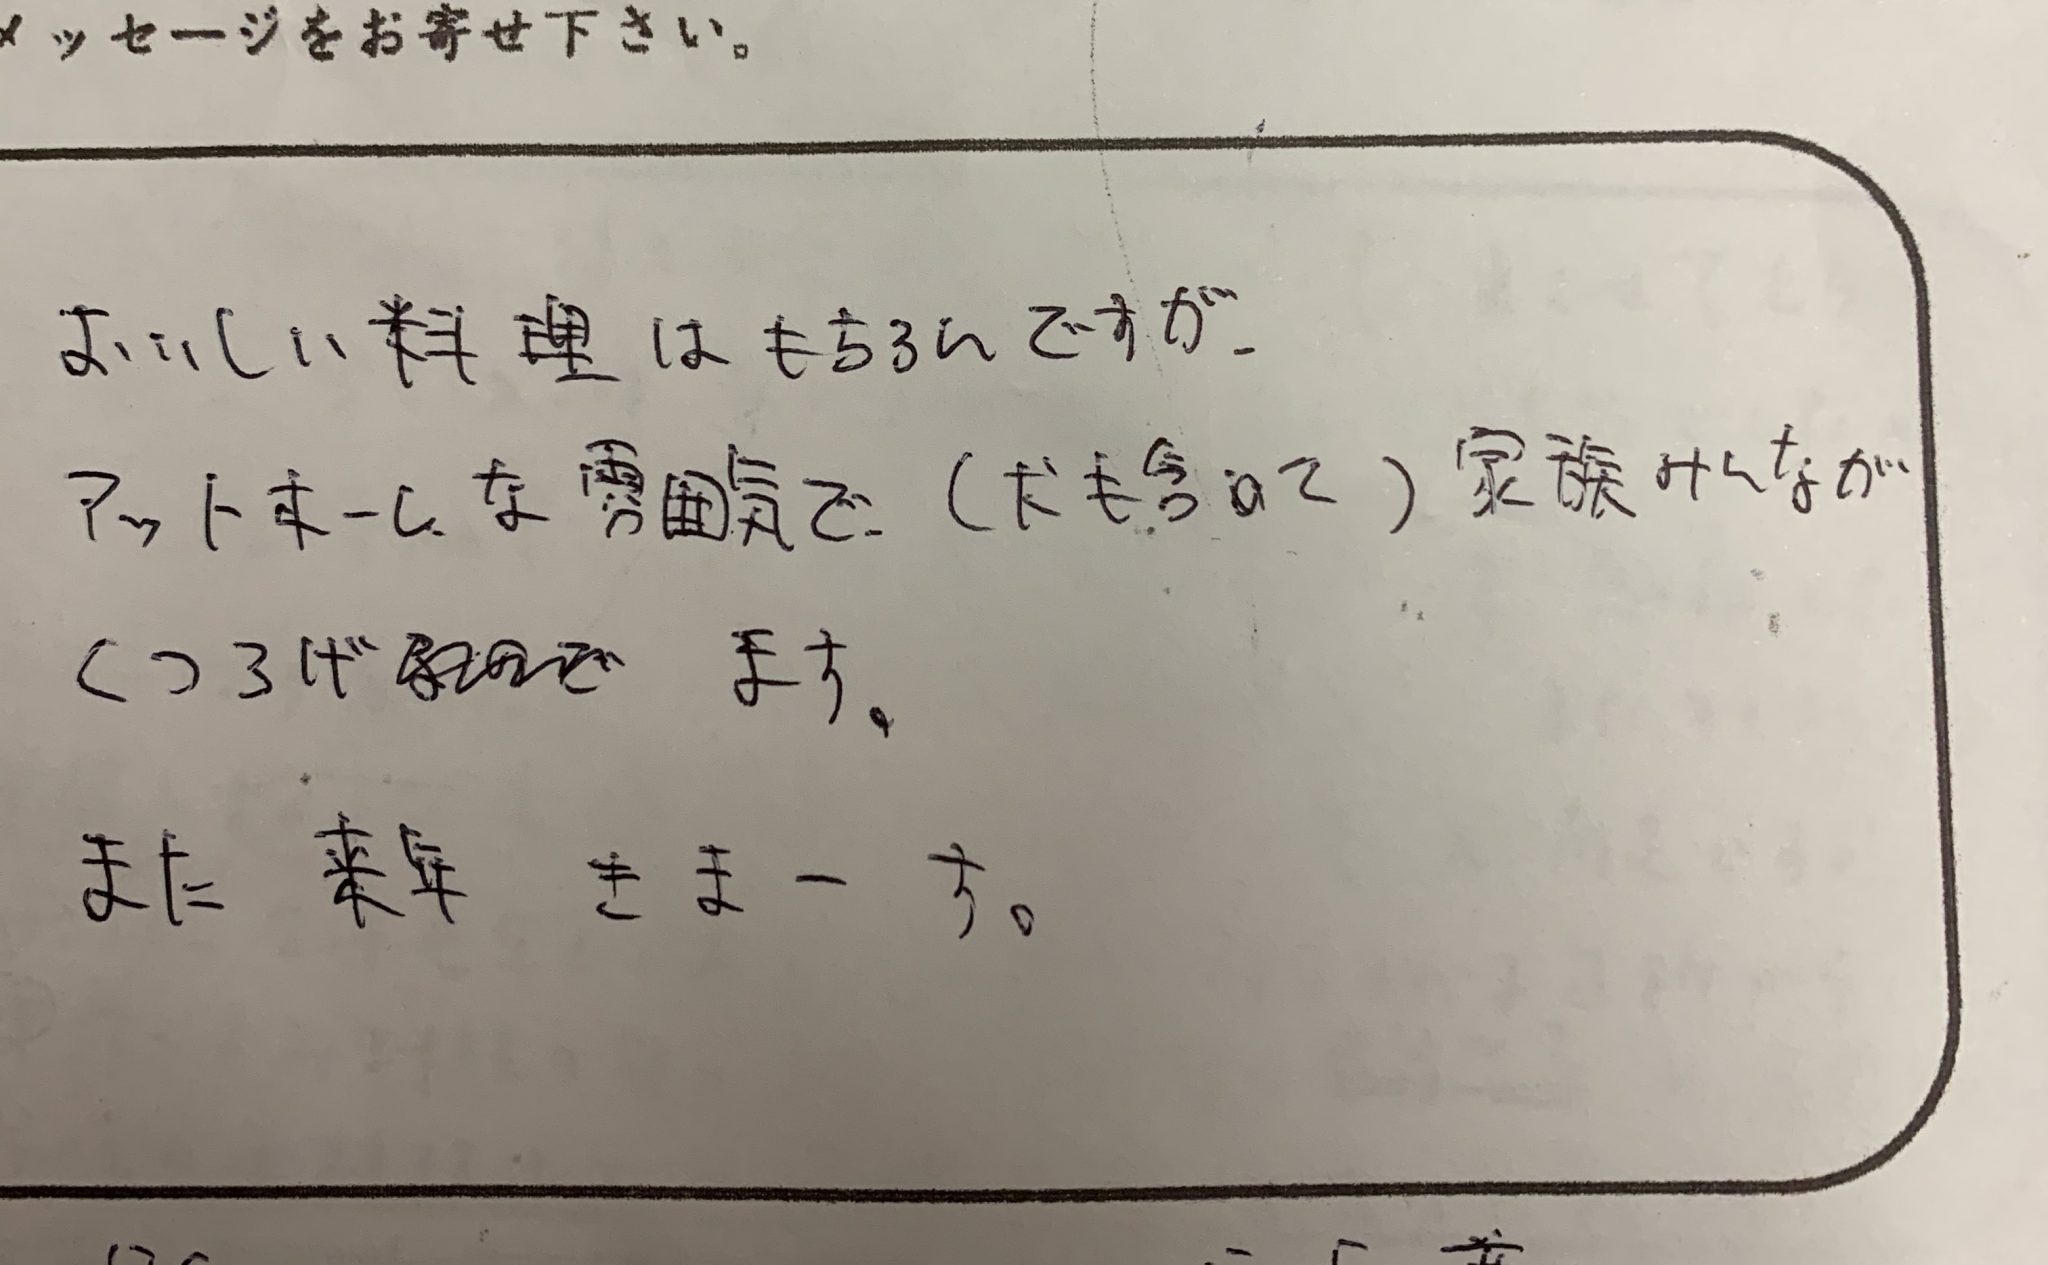 メッセージをお寄せ下さい。
おいしい料理はもちろんですが、
アットホームな雰囲気で、(犬も含めて)家族みんなが
くつろげ ます。
また 来年 きまーす。